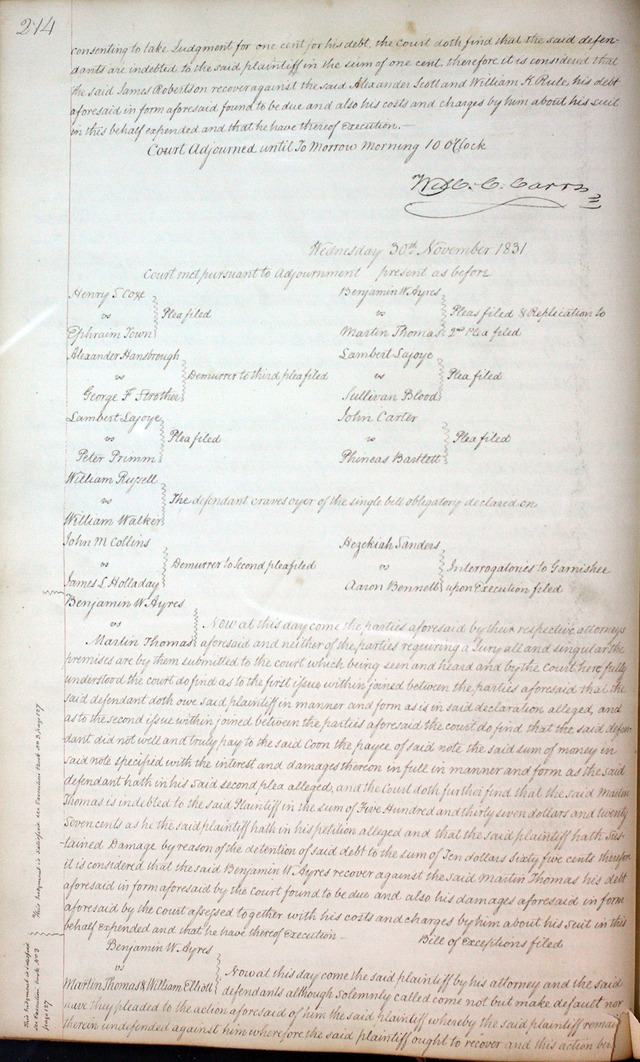 214
consenting to take Judgment for one cent for his debt, the Court doth find that the said defen-
dants are indebted to the said plaintiff in the sum of one cent, therefore it is considered that
the said James Robertson recover against the said Alexander Scott and William K Rule, his debt
aforesaid in form aforesaid found to be due and also his costs and charges by him about his suit
in this behalf expended and that he have thereof Execution.—
Court Adjourned until To Morrow Morning 10 OClock
Wm. C. Carr
Wednesday 30th November 1831
Court met pursuant to Adjournment present as before
Henry S. Coxe
vs
Ephraim Town
Plea filed
Benjamin W. Ayres
vs
Martin Thomas
Pleas filed & Replication to
2nd Plea filed
Alexander Hansbrough
vs
George F Strother
Demurrer to third plea filed
Lambert Lajoye
vs
Sullivan Blood
Plea filed
Lambert Lajoye
vs
Peter Primm
Plea filed
John Carter
vs
Phineas Bartlett
Plea filed
William Russell
vs
William Walker
The defendant craves oyer of the single bill obligatory declared on
John M Collins
vs
James S. Holladay
Demurrer to Second plea filed
Hezekiah Sanders
vs
Aaron Bennett
Interrogatories to Garnishee
upon Execution filed
Benjamin W. Ayres
vs
Martin Thomas
Now at this day come the parties aforesaid by their respective attorneys
aforesaid and neither of the parties requiring a Jury all and singular the
premises are by them submitted to the court which being seen and heard and by the Court here fully
understood the court do find as to the first issue within joined between the parties aforesaid that the
said defendant doth owe said plaintiff in manner and form as is in said declaration alleged, and
as to the second issue within joined between the parties aforesaid the court do find that the said defen-
dant did not well and truly pay to the said Coon the payee of said note the said sum of money in
said note specified with the interest and damages thereon in full in manner and form as the said
defendant hath in his said second plea alleged, and the Court doth further find that the said Martin
Thomas is indebted to the said Plaintiff in the sum of Five Hundred and thirty seven dollars and twenty
Seven cents as he the said plaintiff hath in his petition alleged and that the said plaintiff hath Sus-
tained Damage by reason of the detention of said debt to the sum of Ten dollars sixty five cents therefore
it is considered that the said Benjamin W. Ayres recover against the said Martin Thomas his debt
aforesaid in form aforesaid by the Court found to be due and also his damages aforesaid in form
aforesaid by the court assessed together with his costs and charges by him about his Suit in this
behalf expended and that he have thereof Execution— Bill of Exceptions filed
This Judgment is satisfied see Execution Book No 3 page 187
Benjamin W. Ayres
vs
Martin Thomas & William Elliott
Now at this day come the said plaintiff by his attorney and the said
defendants although Solemnly called come not but make default nor
have they pleaded to the action aforesaid of him the said plaintiff whereby the said plaintiff remains
therein undefended against him wherefore the said plaintiff ought to recover and this action being
This Judgment is satisfied
see Execution book No 3
page 187